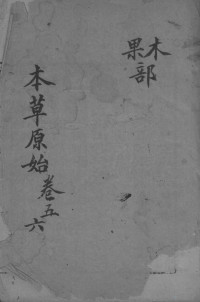 木部
果
本草原始卷五六